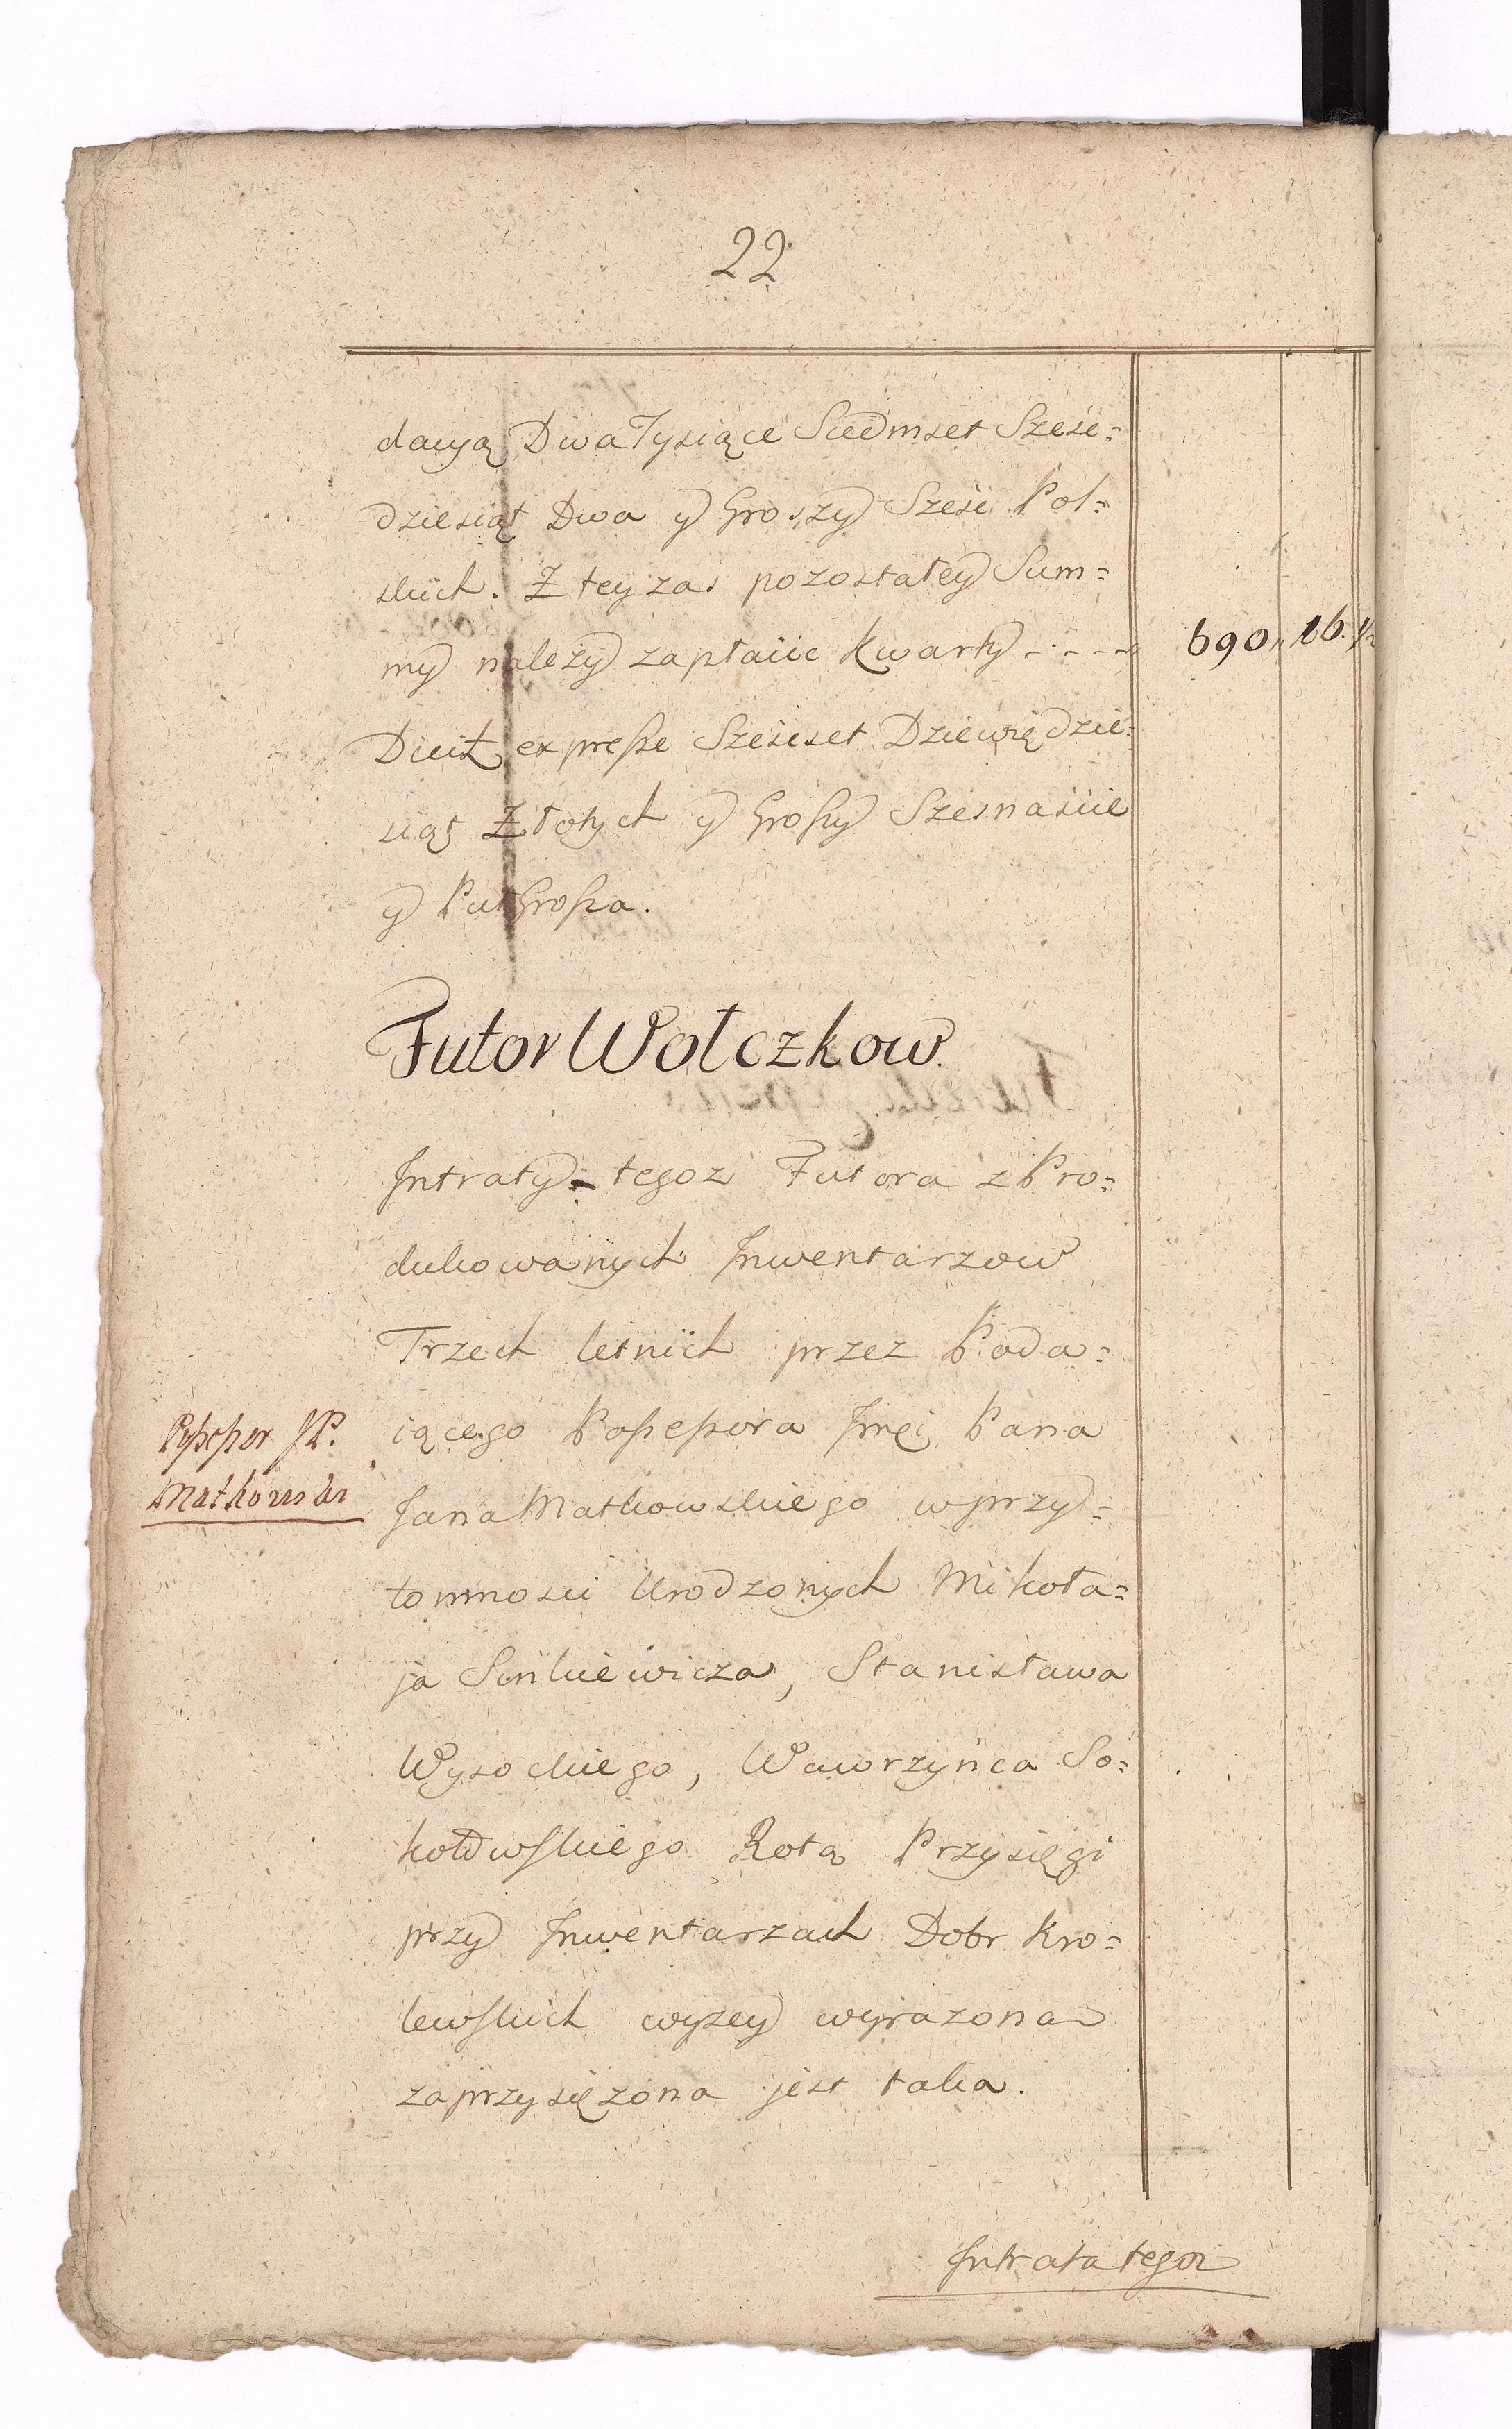 22
dacyą Dwa Tysiące Siedmset Szesc=
dziesiąt Dwa y Groszy Szesc Pol=
skich. Z tey zas pozostałey Sum=
my nalezy zapłacic Kwarty - - - - 690„ 16. 1/2
Dicit expresse Szescset Dziewiędzie=
siąt Złotych y Groszy Szesnascie
y Puł Grosza.
Futor Wołczkow.
Intraty - tegoz Futora z Pro=
dukowanych Inwentarzow
Trzech letnich przez Poda=
Possessor JP. iącego Possessora Jmci Pana
Matkowski Jana Matkowskiego w przy=
tomnosci Urodzonych Mikoła=
ja Sinkiewicza, Stanisława
Wysockiego, Wawrzyńca So=
kołowskiego Rotą Przysięgi
przy Inwentarzach Dobr Kro=
lewskich wyzey wyrazona
zaprzysięzona jest taka.
Intrata tegoz